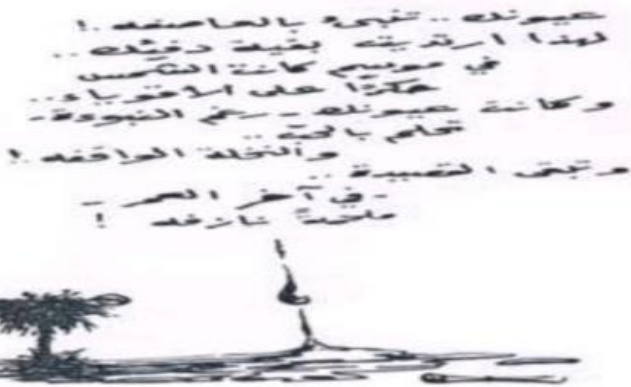 عيونك .. تنبىء بالعاصفه .!
لهذا ارتديت بقية دفئك ..
في موسم كانت الشمس
حكرًا على الأقوياء ..
وكانت عيونك - رغم النبوءة -
تحلم بالحب ..
والنخلة الواقفه !
وتبقى القصيدة ..
- في آخر العمر -
ملحمةً نازفه !